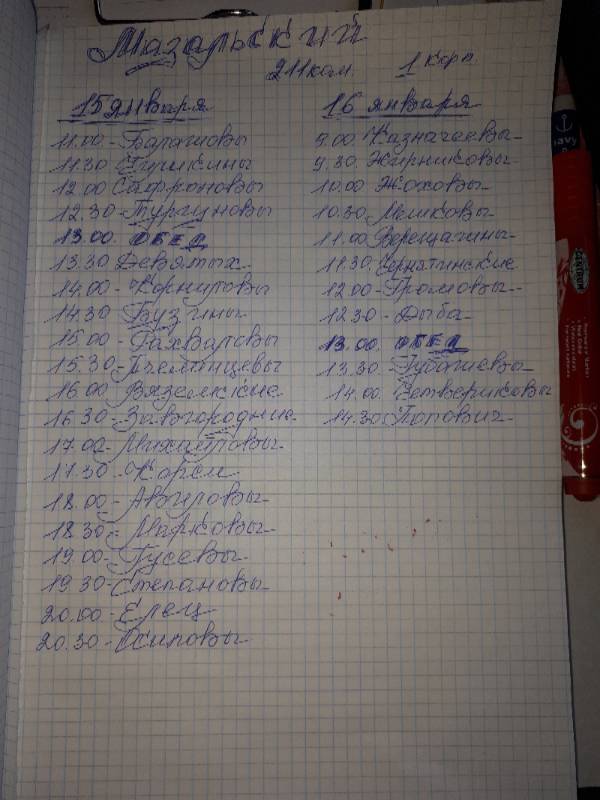 Мазальский
211 ком. 1 корп.
15 января
11.00 - Барашовы
11.30 Пушкины
12.00 Сафроновы
12.30 - Тургуновы
13.00. ОБЕД
13.30 Девятых
14.00 - Корнаровы
14.30 - Бузины
15.00 - Рахваловы
15.30 - Пчелинцевы
16.00 Вяземские
16.30 - Завгородние
17.00 - Михайловы
17.30 - Карем
18.00 - Авировы
18.30 - Марковы
19.00 - Гусевы
19.30 - Степановы
20.00 - Елец
20.30 - Осиповы
16 января
9.00 Казначеевы
9.30. Жирниковы
10.00 Жоховы
10.30 Мешковы
11.00 Верещагины
11.30 Чернятинские
12.00 - Громовы
12.30 - Дыба
13.00. ОБЕД
13.30 - Губашевы
14.00. Четвериковы
14.30 Попович
navy
CENTRUM